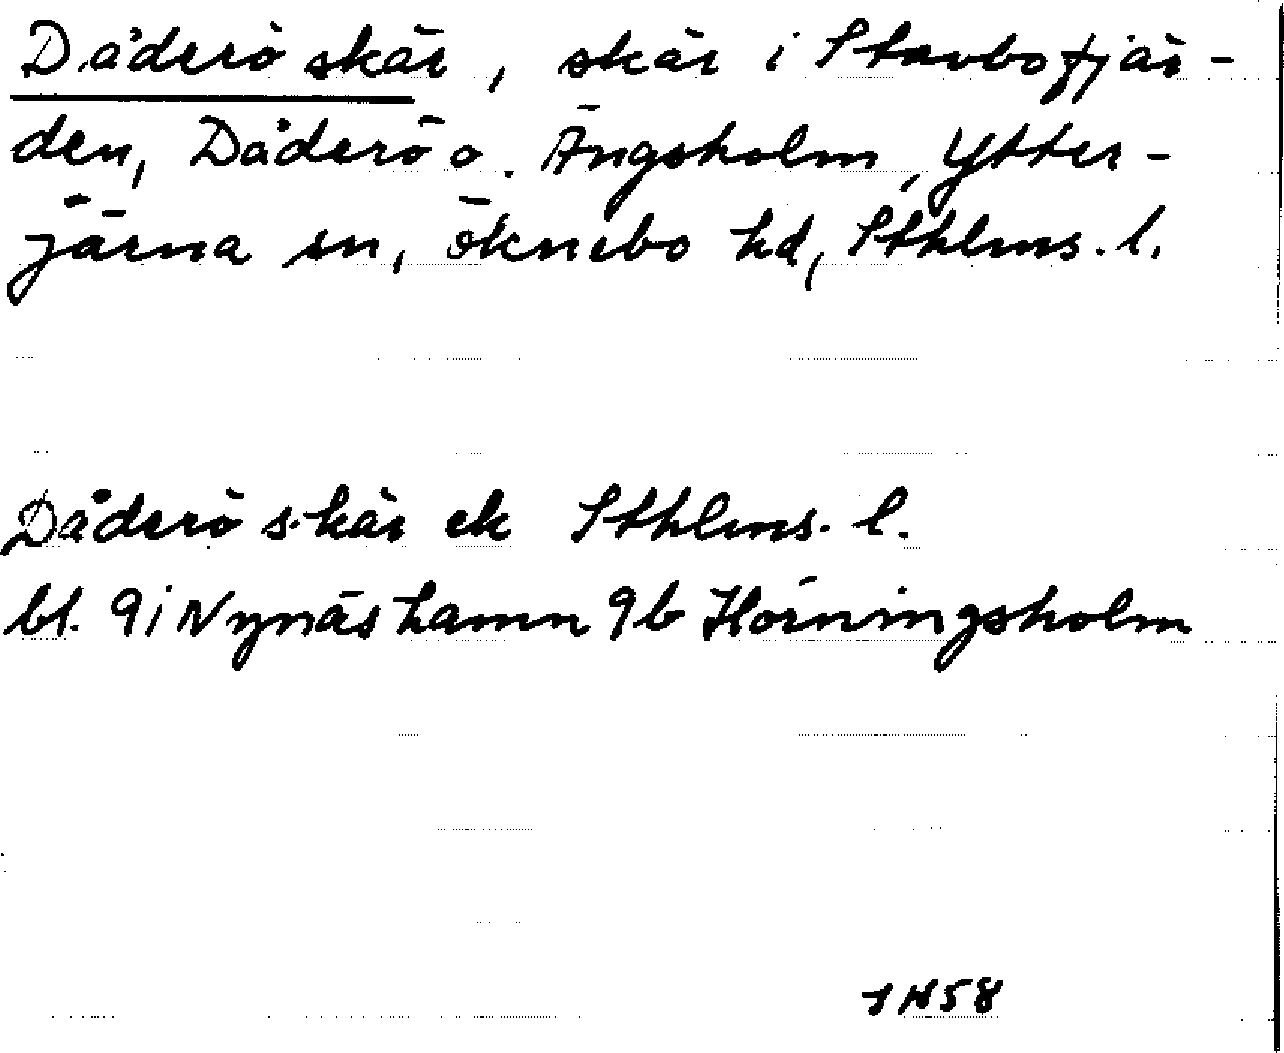 Dåderö skär, skär i Stavbofjär-
den, Dåderö o. Ängsholm, Ytter-
järna sn, Öknebo hd, Sthlms. l.
Dåderö skär ek Sthlms. l.
bl. 9i Nynäshamn 9b Hörningsholm
JN58